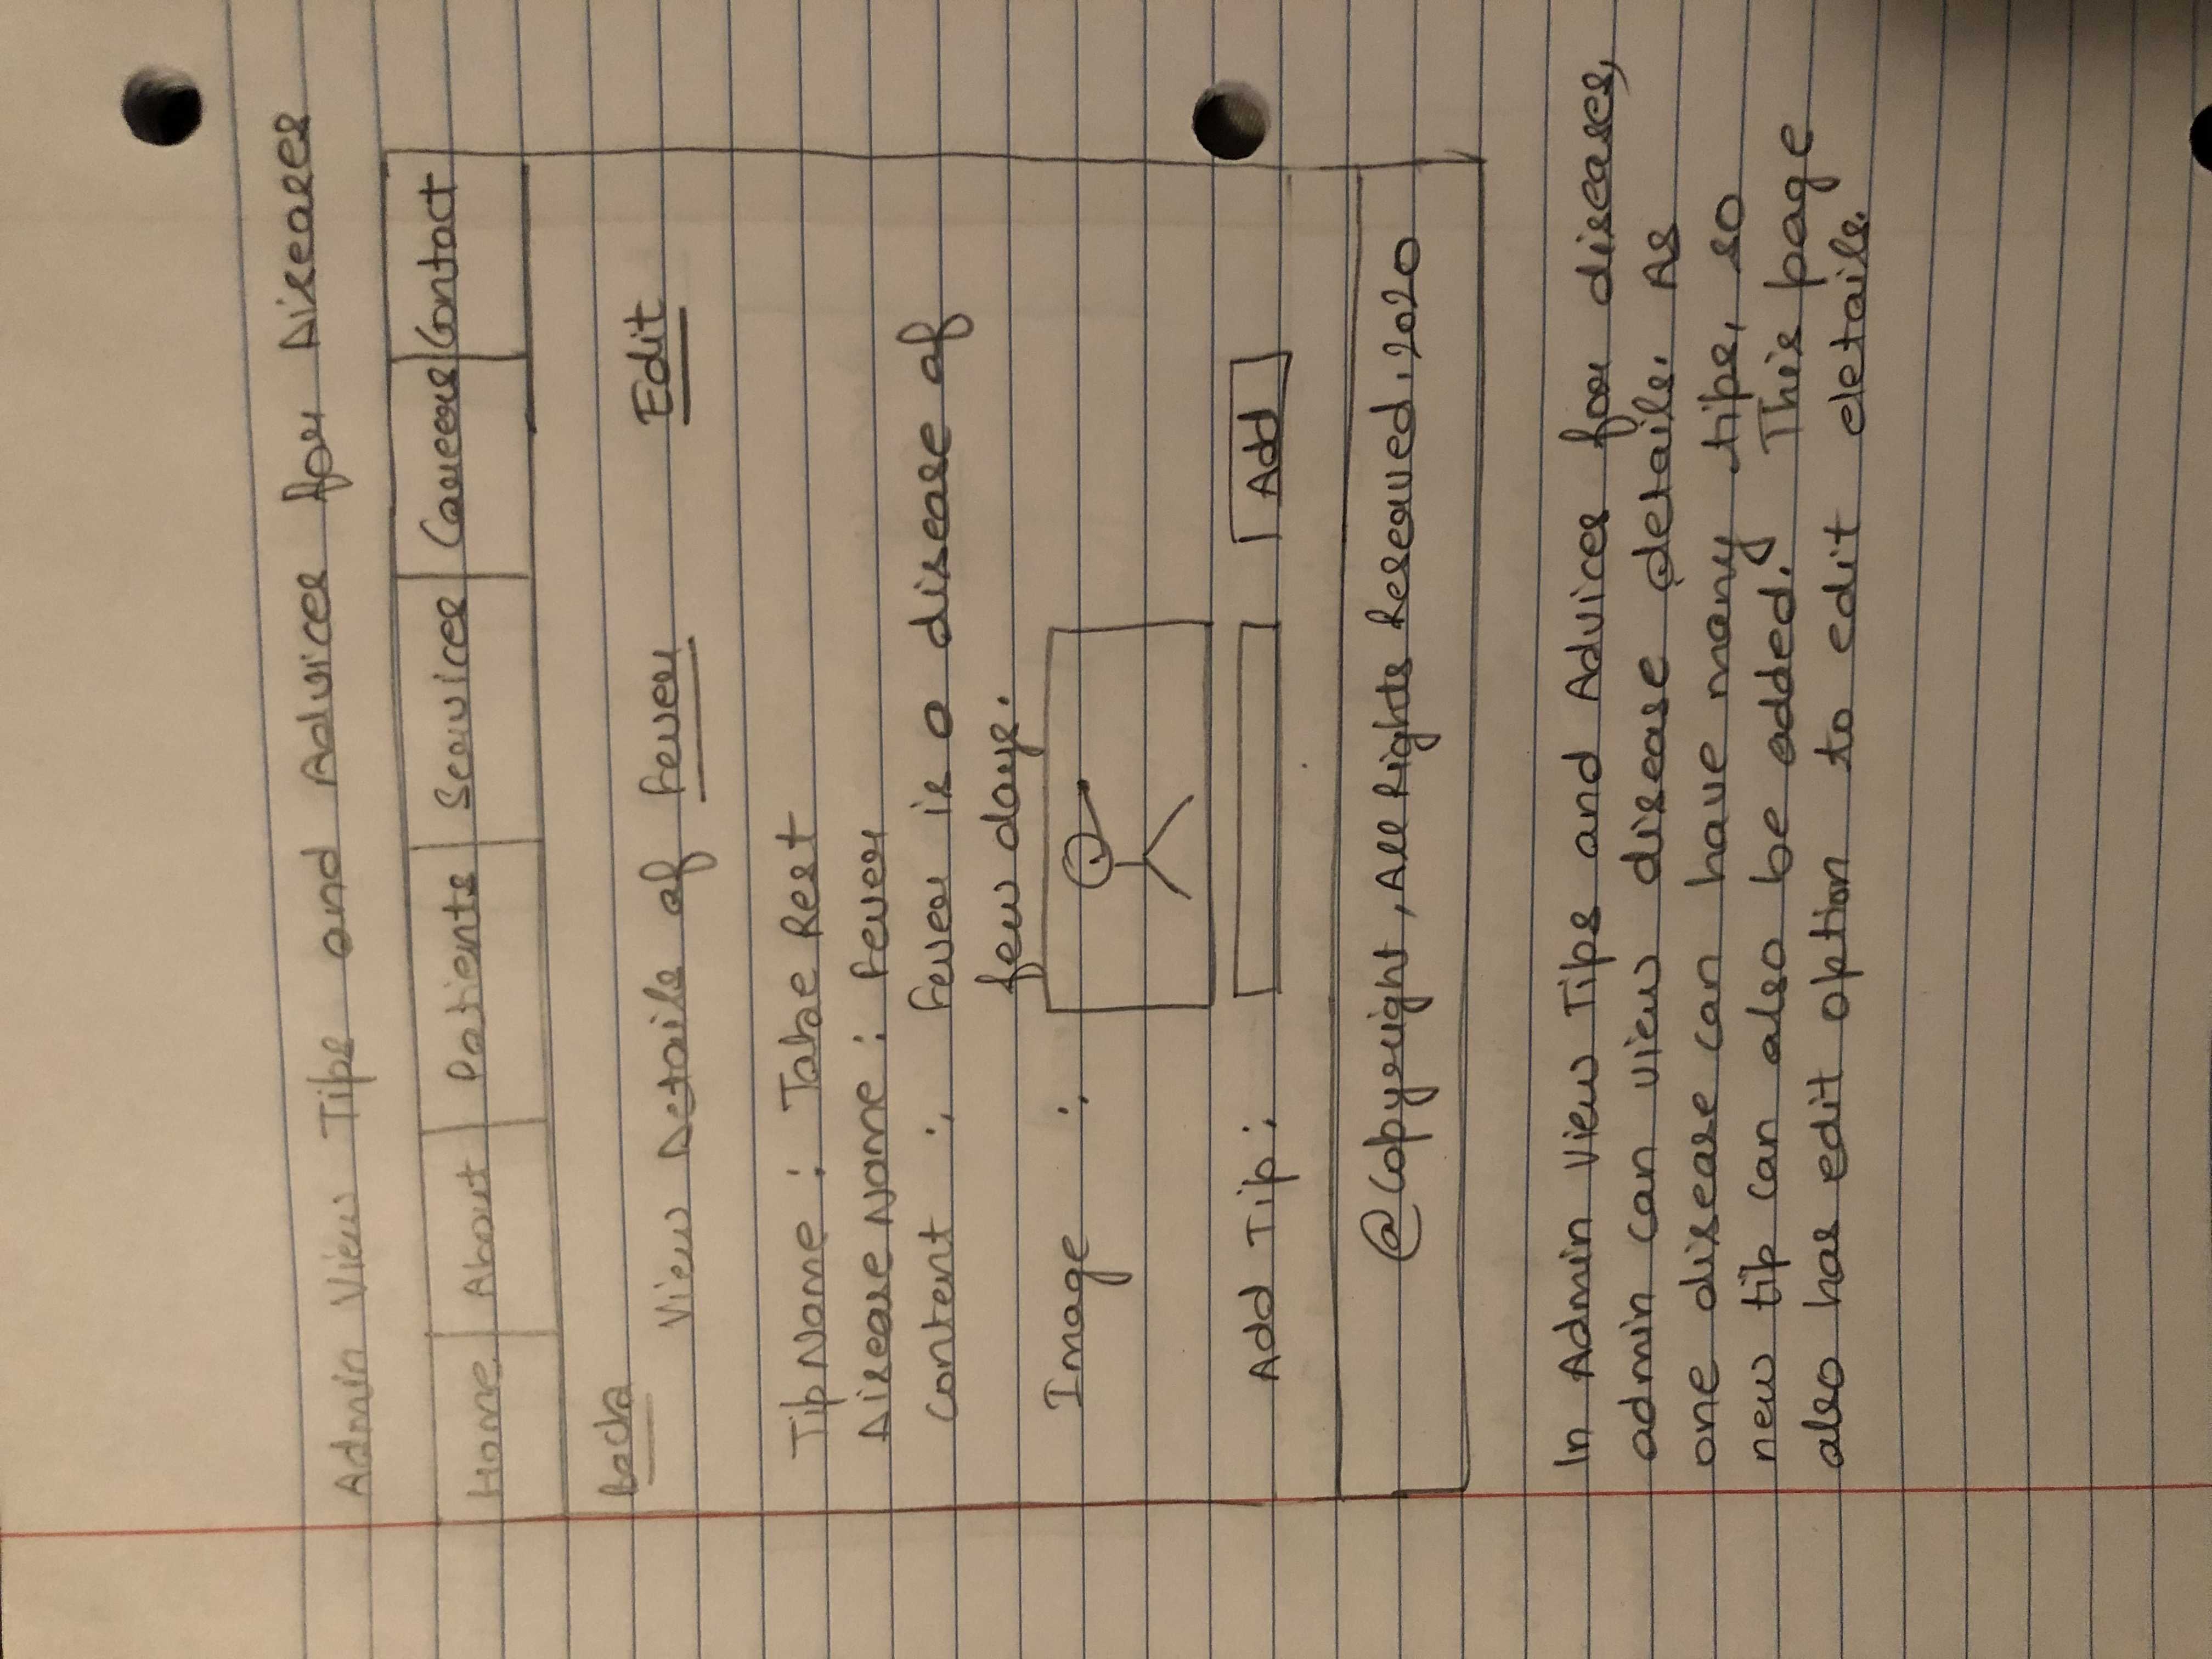 Admin View Tips and Advices for Diseases
Home About Patients Services Careers Contact
Back
View Details of Fever Edit
Tip Name : Take Rest
Disease Name : Fever
Content : Fever is a disease of
few days.
Image :
Add Tip : Add
@Copyright, All Rights Reserved, 2020
In Admin View Tips and Advices for diseases,
admin can view disease details. As
one disease can have many tips, so
new tip can also be added. This page
also has edit option to edit details.